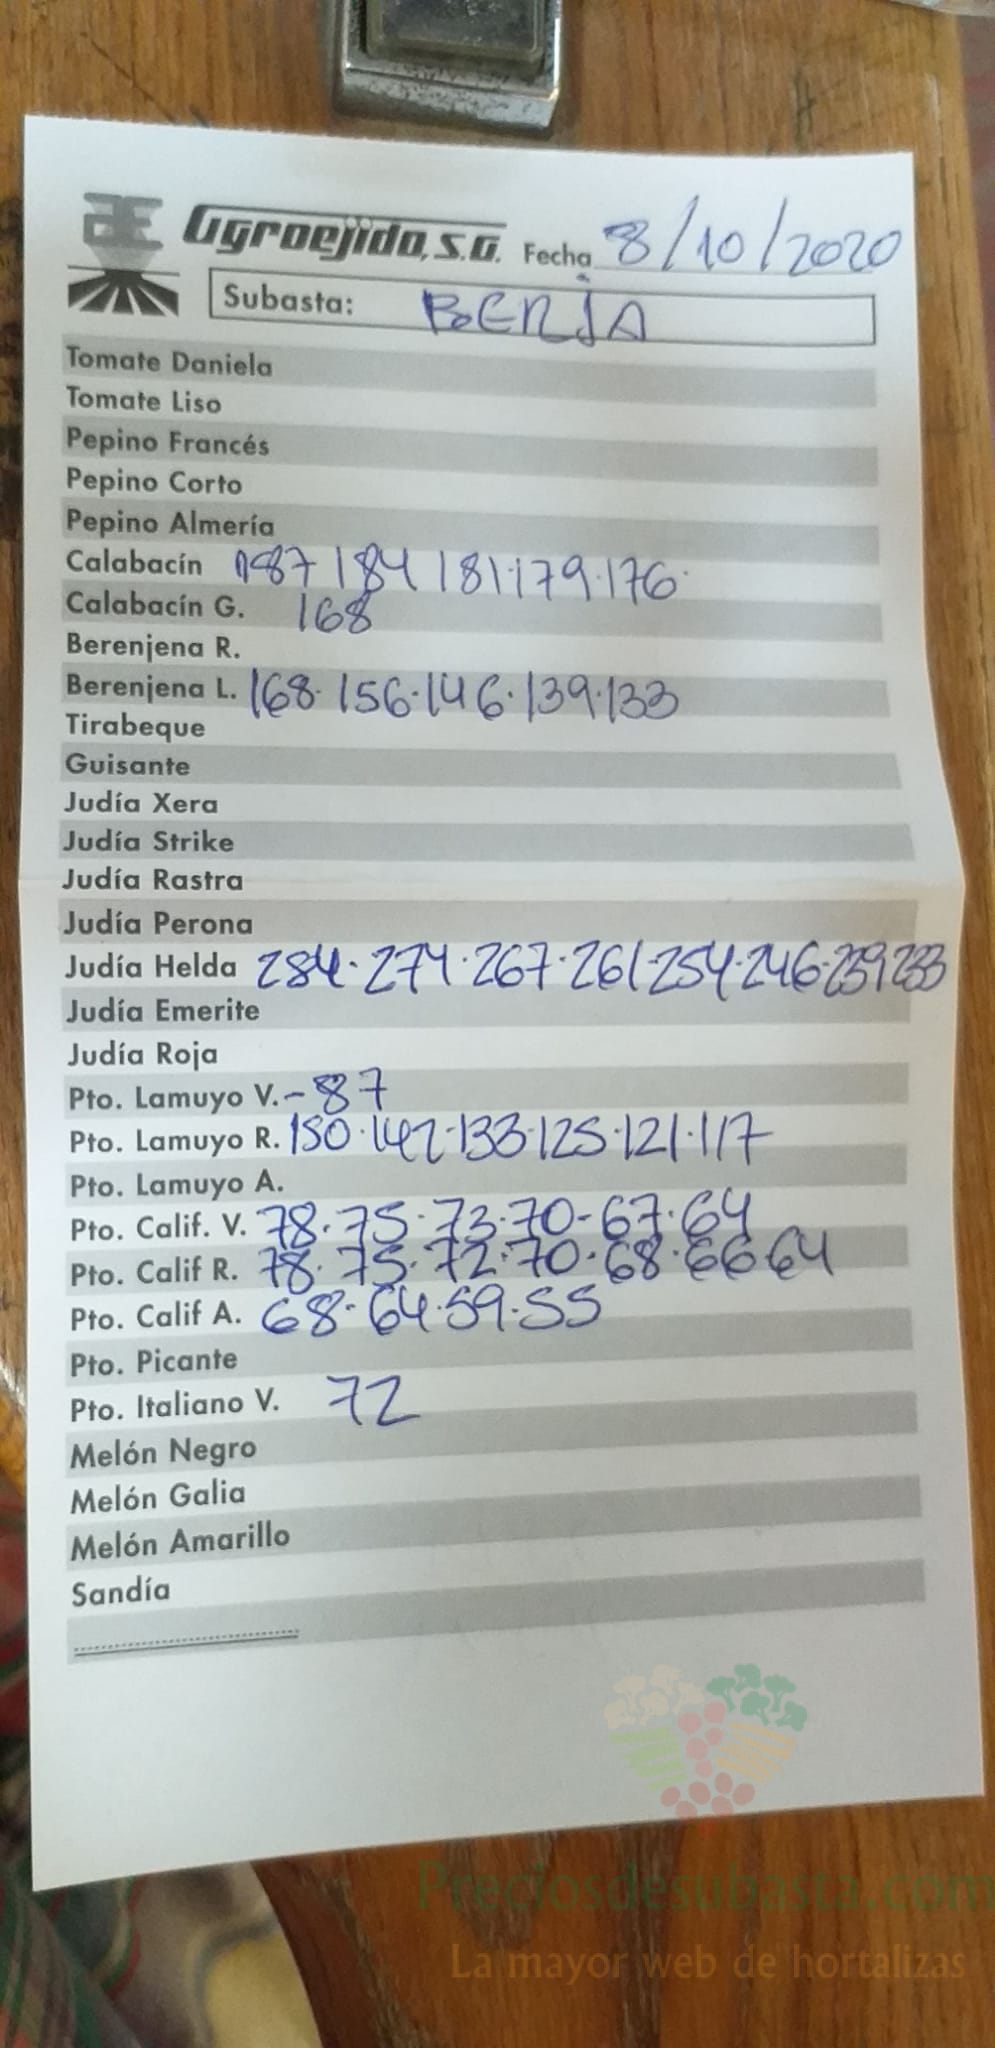 AE Agroejido, S.A. Fecha 8/10/2020
Subasta: BERJA
Tomate Daniela
Tomate Liso
Pepino Francés
Pepino Corto
Pepino Almería
Calabacín 187 184 181·179·176·
Calabacín G. 168
Berenjena R.
Berenjena L. 168·156·146·139·133
Tirabeque
Guisante
Judía Xera
Judía Strike
Judía Rastra
Judía Perona
Judía Helda 284·274·267·261·254·246·239 233
Judía Emerite
Judía Roja
Pto. Lamuyo V. - 87
Pto. Lamuyo R. 150·142·133·125·121·117
Pto. Lamuyo A.
Pto. Calif. V. 78·75·73·70-67·64
Pto. Calif R. 78·75·72·70·68·66 64
Pto. Calif A. 68·64·59·55
Pto. Picante
Pto. Italiano V. 72
Melón Negro
Melón Galia
Melón Amarillo
Sandía
Preciosdesubasta.com
La mayor web de hortalizas